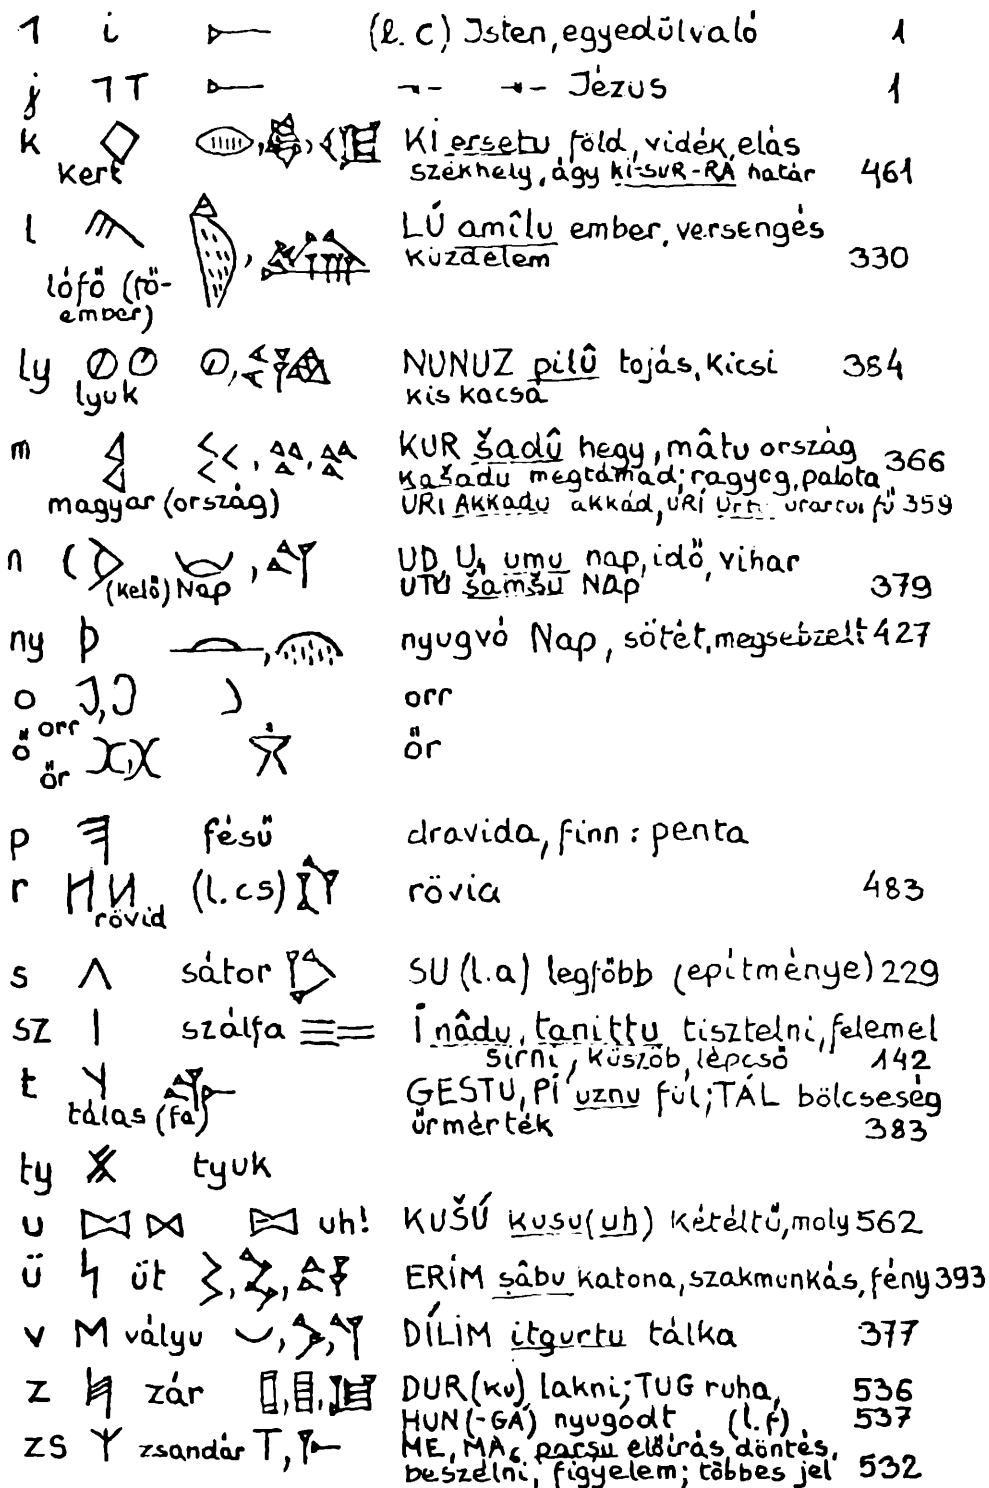 i (l. c) Isten, egyedülvaló 1
j Jézus 1
k KI ersetu föld, vidék, elás
kert székhely, ágy KI-SUR-RA határ 461
l LÚ amîlu ember, versengés
küzdelem 330
lófő (fő-
ember)
ly NUNUZ pilû tojás, kicsi 384
lyuk kis kacsa
m KUR šadû hegy, mâtu ország 366
kašadu megtámad; ragyog, palota
magyar (ország) URI Akkadu akkád, URI fű 359
n UD, U₄ umu nap, idő, vihar
(kelő) Nap UTU šamšu Nap 379
ny nyugvó Nap, sötét, megsebzett 427
o orr
orr
ő őr
őr
p fésű dravida, finn: penta
r (l. cs) rövia 483
rövid
s sátor SU (l. a) legfőbb (építménye) 229
sz szálfa Í nâdu, tanittu tisztelni, felemel
sírni, küszöb, lépcső 142
t GESTU, PI uznu fül; TÁL bölcseség
tálas (fa) űrmérték 383
ty tyuk
u uh! KUŠÚ kusu (uh) kétéltű, moly 562
ü üt ERIM sâbu katona, szakmunkás, fény 393
v M vályu DÍLIM itgurtu tálka 377
z zár DUR (ku) lakni; TUG ruha, 536
HUN (-GÁ) nyugodt (l. f) 537
zs zsandár ME, MA₆ parsu előírás, döntés,
beszélni, figyelem; többes jel 532